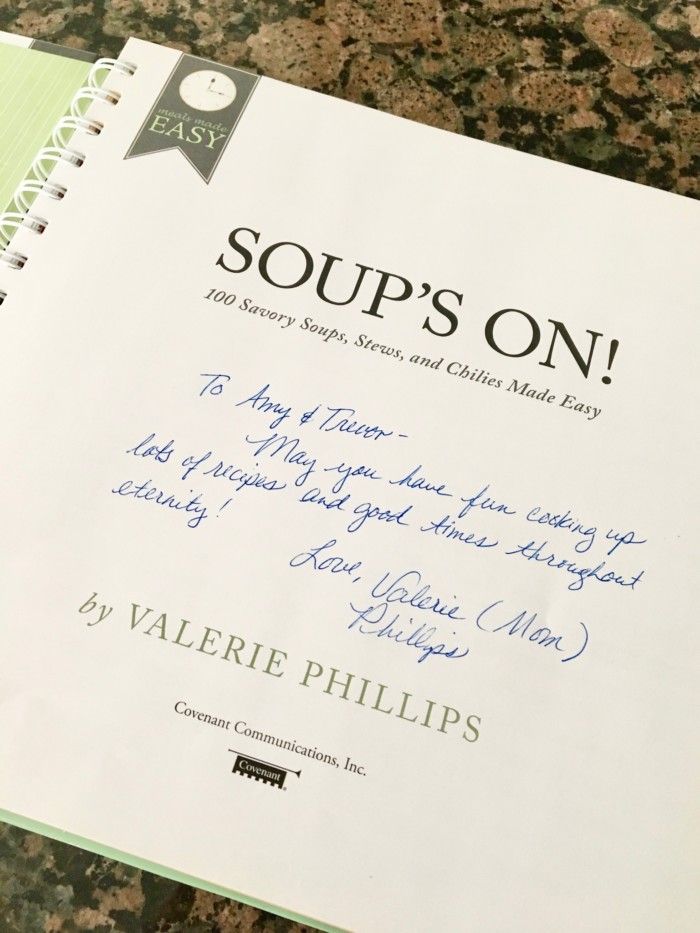 meals made
EASY
SOUP'S ON!
100 Savory Soups, Stews, and Chilies Made Easy
To Amy & Trevor-
May you have fun cooking up
lots of recipes and good times throughout
eternity!
Love, Valerie (Mom)
Phillips
by VALERIE PHILLIPS
Covenant Communications, Inc.
Covenant